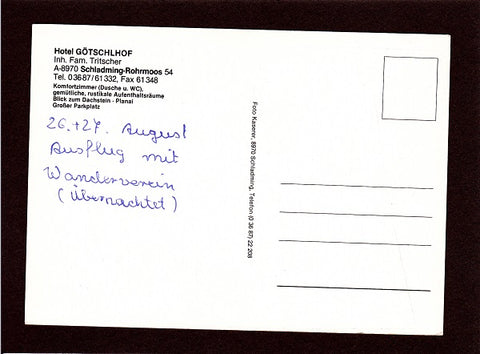 Hotel GÖTSCHLHOF
Inh. Fam. Tritscher
A-8970 Schladming-Rohrmoos 54
Tel. 03687/61332, Fax 61348
Komfortzimmer (Dusche u. WC),
gemütliche, rustikale Aufenthaltsräume
Blick zum Dachstein - Planai
Großer Parkplatz
26.+27. August
Ausflug mit
Wanderverein
(Übernachtet)
Foto Kaserer, 8970 Schladming, Telefon (0 36 87) 22 208